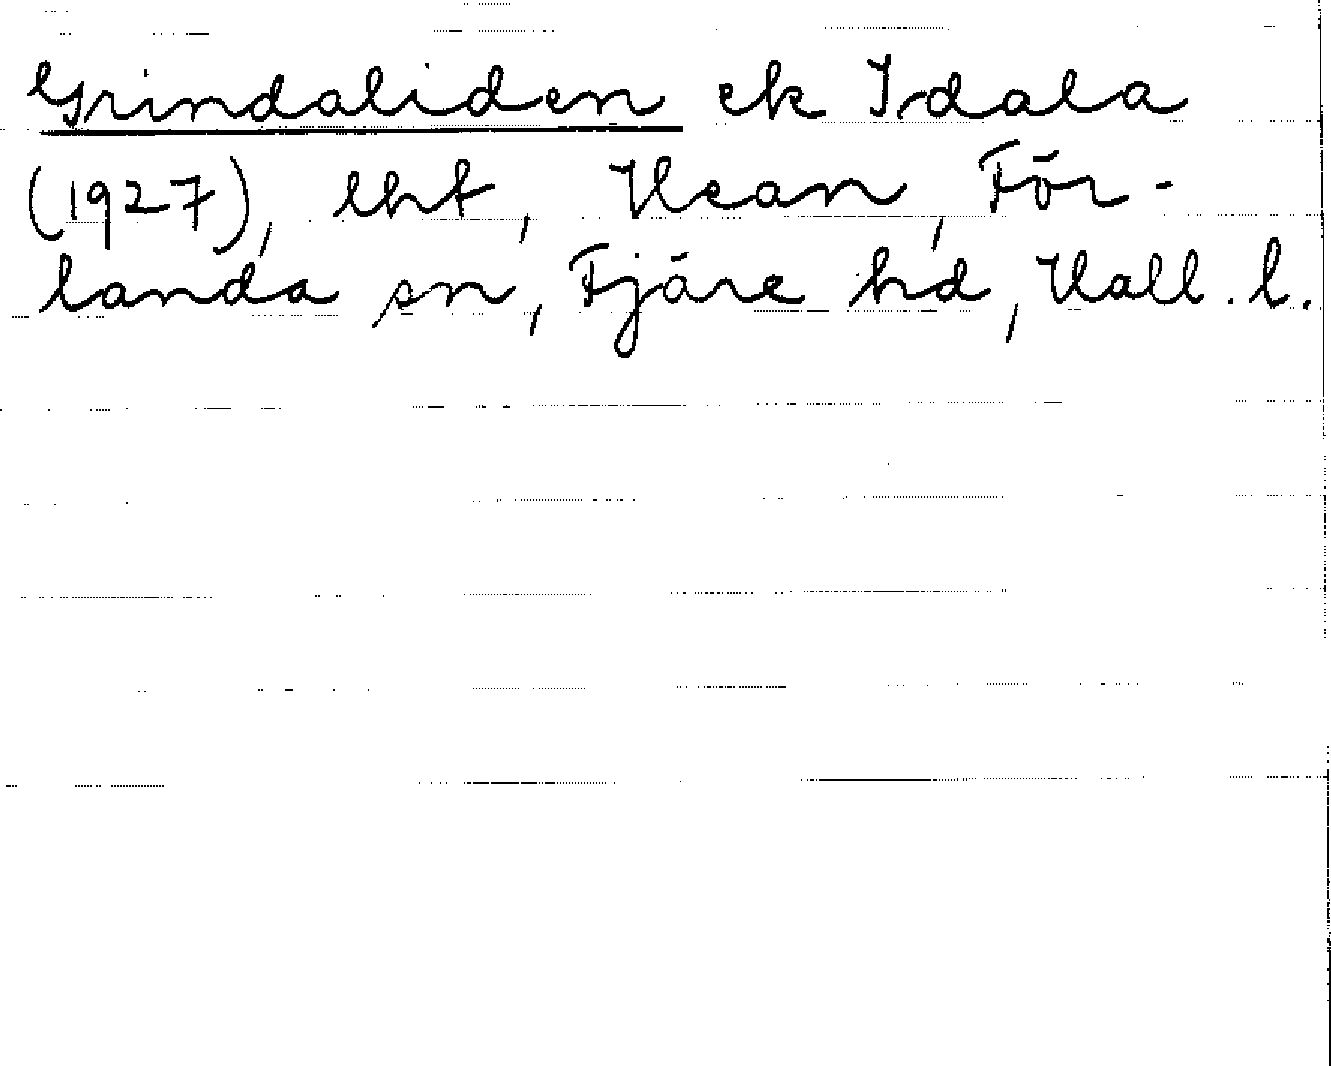 Grindaliden ek Idala
(1927), lht, Hean, För-
landa sn, Fjäre hd, Hall. l.